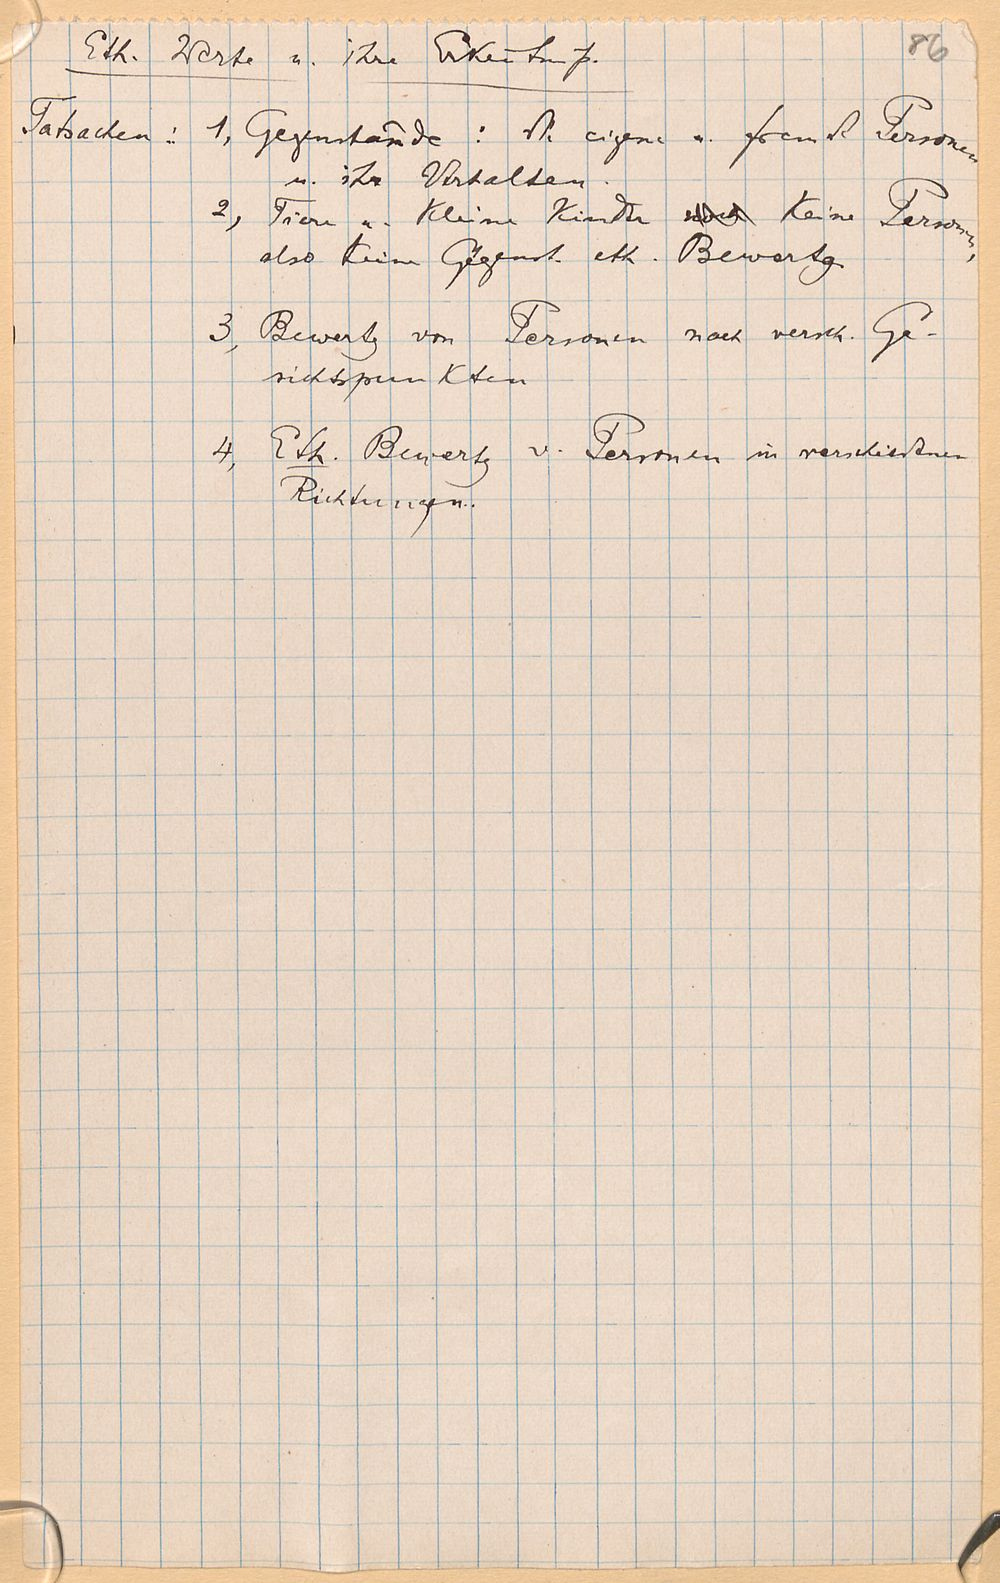 86
Eth. Werte u. ihre Erkenntniß.
Tatsachen: 1, Gegenstände: die eigene u. fremde Personen
u. ihr Verhalten.
2, Tiere u. kleine Kinder keine Personen,
also keine Gegenst. eth. Bewertg
3, Bewertg von Personen nach versch. Ge-
sichtspunkten
4, Eth. Bewertg v. Personen in verschiedenen
Richtungen.